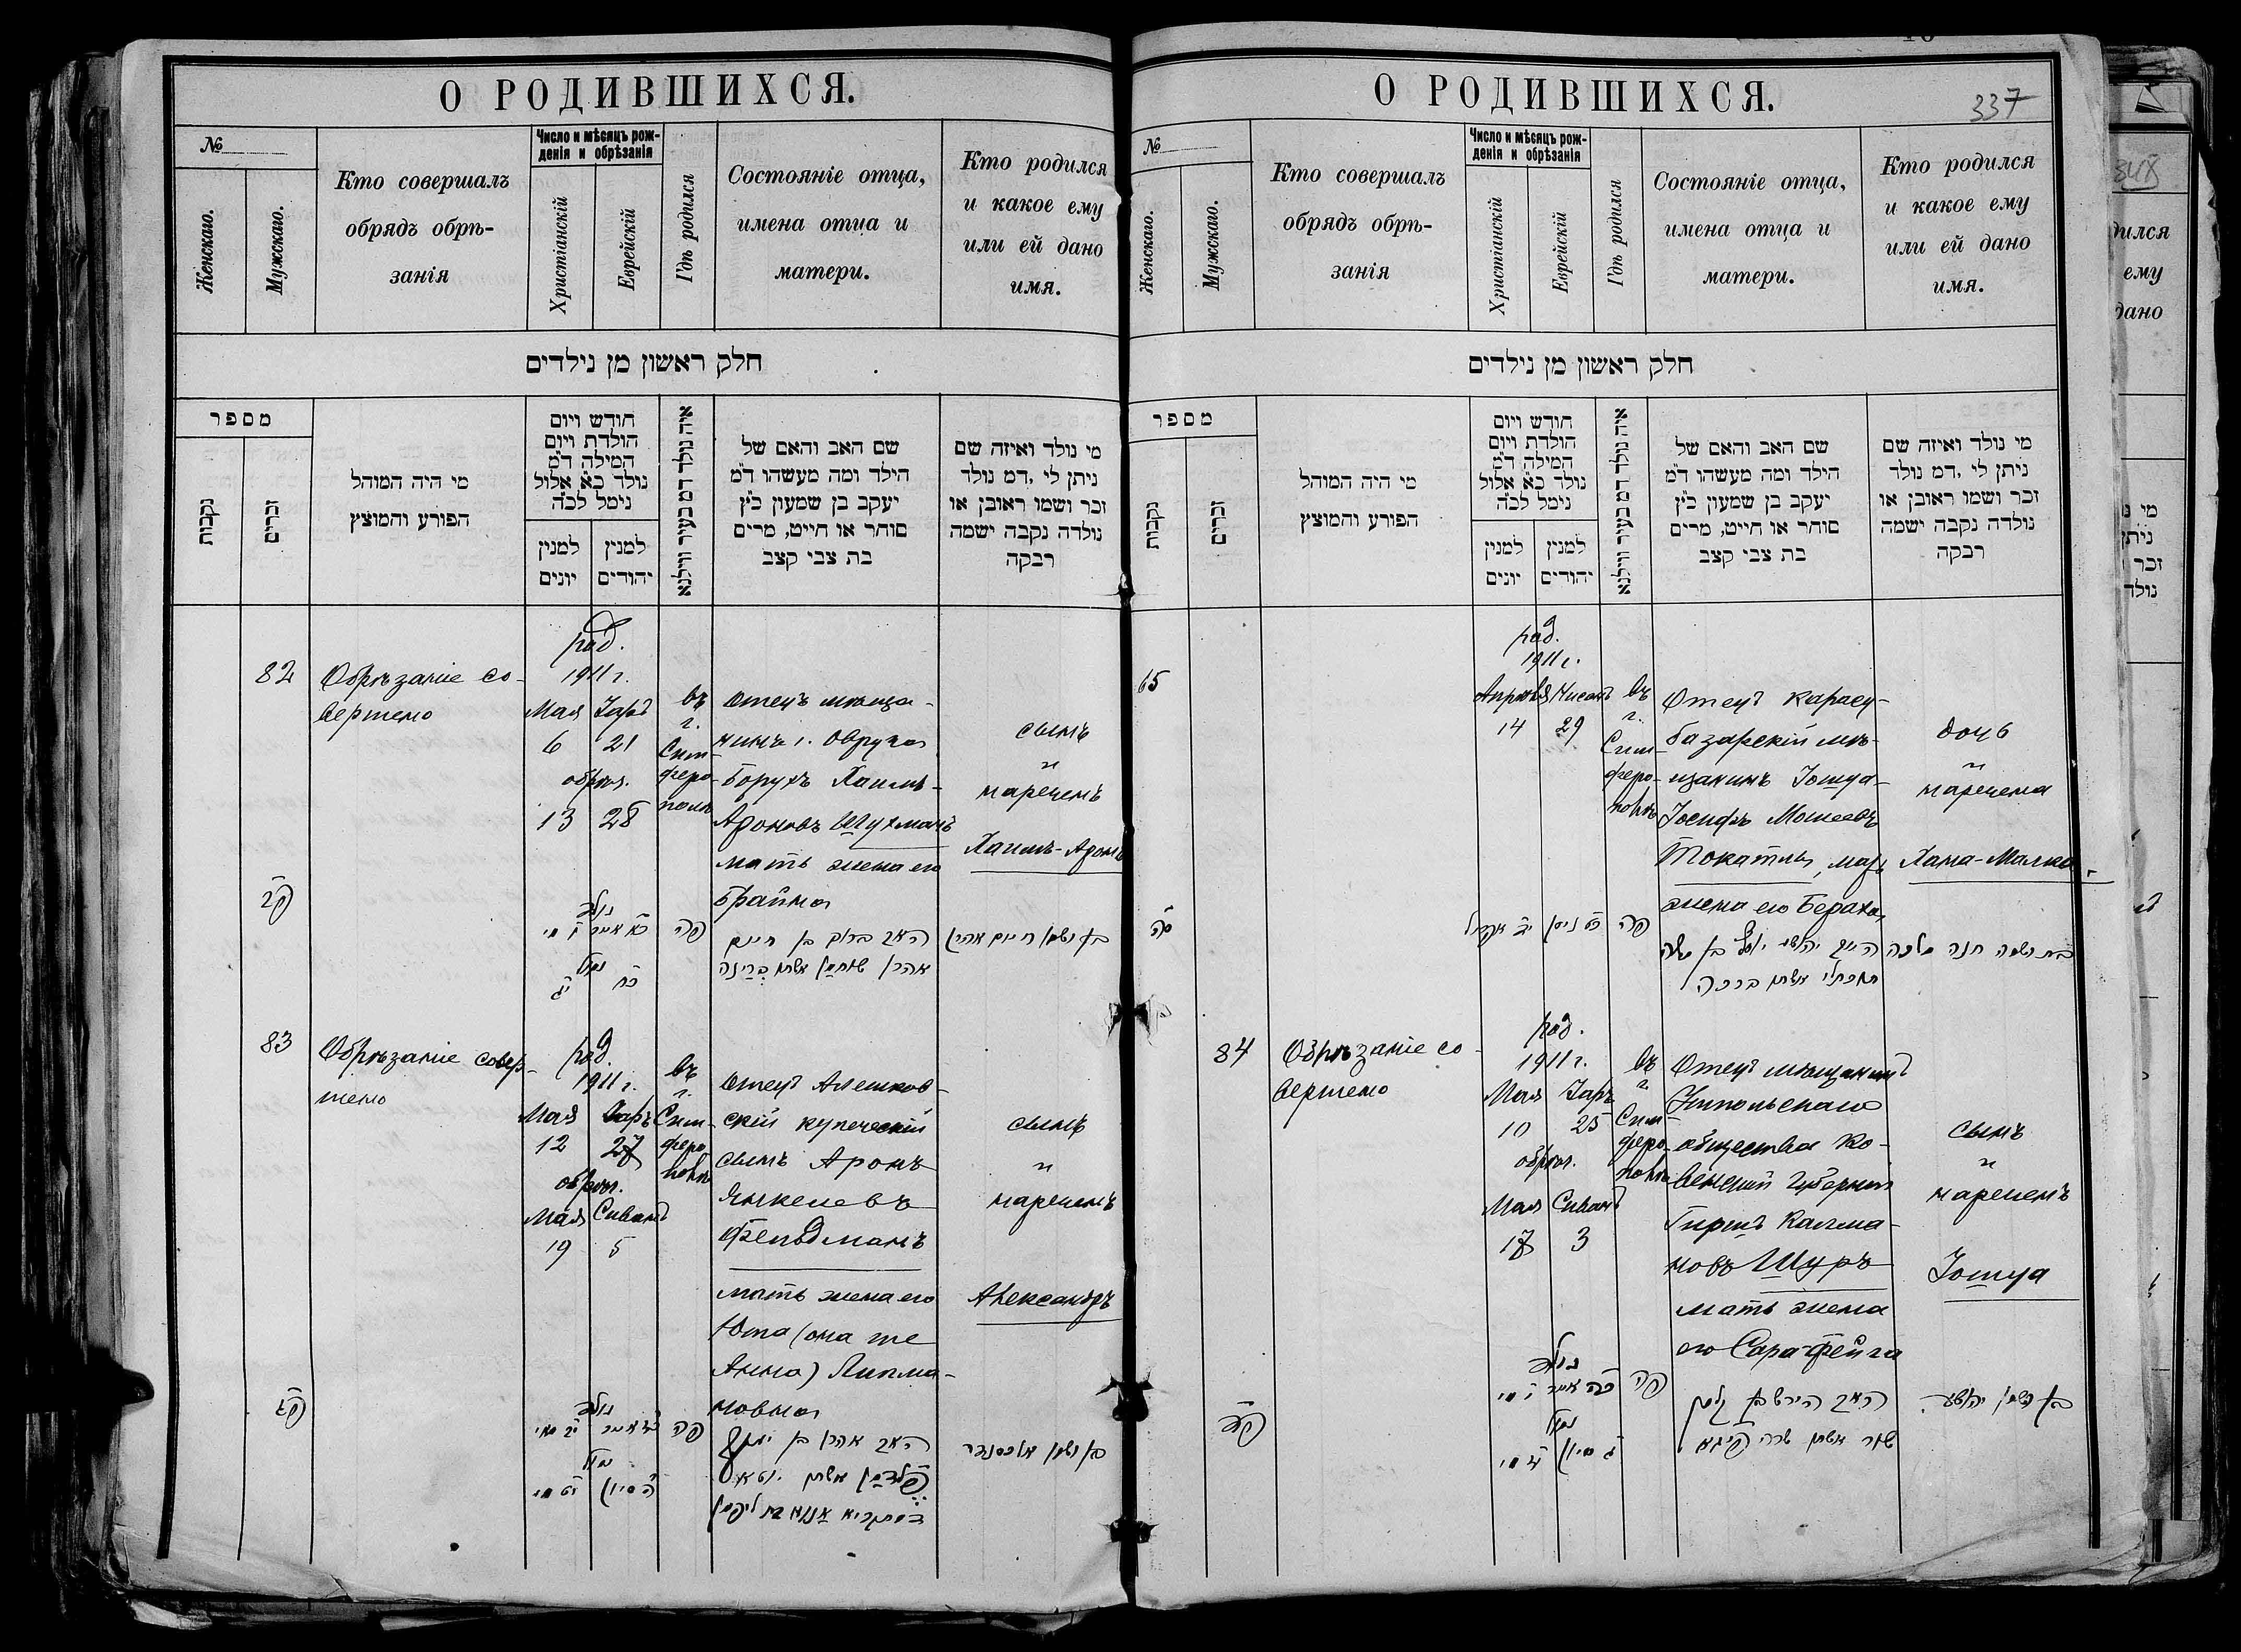 О РОДИВШИХСЯ.
№
Женскаго.
Мужскаго.
Кто совершалъ
обрядъ обрѣ-
занія
Число и мѣсяцъ рож-
денія и обрѣзанія
Христіанскій
Еврейскій
Гдѣ родился
Состояніе отца,
имена отца и
матери.
Кто родился
и какое ему
или ей дано
имя.
חלק ראשון מן נילדים
מספר
נקבות
זכרים
מי היה המוהל
הפורע והמוצץ
חודש ויום
הולדת ויום
המילה ד״מ
נולד כ״א אלול
נימל לכ״ה
למנין
יונים
למנין
יהודים
איה נולד דמ בעיר ווילנא
שם האב והאם של
הילד ומה מעשהו ד״מ
יעקב בן שמעון כ״ץ
סוחר או חייט, מרים
בת צבי קצב
מי נולד ואיזה שם
ניתן לי ,דמ נולד
זכר ושמו ראובן או
נולדה נקבה ישמה
רבקה
82
Обрѣзаніе со-
вершено
род.
1911 г.
Мая Іаръ
6 21
обрѣз.
13 28
въ
г.
Сим-
феро-
полѣ
отецъ мѣща-
нинъ г. Овруча
Борухъ Хаимъ-
Ароновъ Шухманъ
мать жена его
Брайна
сынъ
и
нареченъ
Хаимъ-Аронъ
פב
נולד
כא אייר ו מי
נמול
כח יג
פה
האב ברוך בן חיים
אהרן שוחמן אשתו בריינה
בן ושמו חיים אהרן
83
Обрѣзаніе совер-
шено
род.
1911 г.
Мая Іаръ
12 27
обрѣз.
Мая Сиванъ
19 5
въ
г.
Сим-
феро-
полѣ
отецъ Алешков-
скій купеческій
сынъ Аронъ
Янкелевъ
Фельдманъ
мать жена его
Юта (она же
Анна) Липма-
новна
сынъ
и
нареченъ
Александръ
פג
נולד
כז אייר יב מאי
נמול
ה סיון יט מי
פה
האב אהרן בן יעקב
פעלדמן אשתו יוטא
דמתקריא אננא בת ליפמן
בן ושמו אלכסנדר
О РОДИВШИХСЯ.
337
№
Женскаго.
Мужскаго.
Кто совершалъ
обрядъ обрѣ-
занія
Число и мѣсяцъ рож-
денія и обрѣзанія
Христіанскій
Еврейскій
Гдѣ родился
Состояніе отца,
имена отца и
матери.
Кто родился
и какое ему
или ей дано
имя.
חלק ראשון מן נילדים
מספר
נקבות
זכרים
מי היה המוהל
הפורע והמוצץ
חודש ויום
הולדת ויום
המילה ד״מ
נולד כ״א אלול
נימל לכ״ה
למנין
יונים
למנין
יהודים
איה נולד דמ בעיר ווילנא
שם האב והאם של
הילד ומה מעשהו ד״מ
יעקב בן שמעון כ״ץ
סוחר או חייט, מרים
בת צבי קצב
מי נולד ואיזה שם
ניתן לי ,דמ נולד
זכר ושמו ראובן או
נולדה נקבה ישמה
רבקה
65
род.
1911 г.
Апрѣля Нисанъ
14 29
въ
г.
Сим-
феро-
полѣ
Отецъ Карасу-
базарскій мѣ-
щанинъ Іошуа-
Іосифъ Мошеевъ
Токатлы, мать
жена его Бераха
дочь
и
наречена
Хана-Малка
סה
כט ניסן יד אפריל
פה
האב יהושע יוסף בן משה
תוכתלי אשתו ברכה
בת ושמה חנה מלכה
84
Обрѣзаніе со-
вершено
род.
1911 г.
Мая Іаръ
10 25
обрѣз.
Мая Сиванъ
17 3
въ
г.
Сим-
феро-
полѣ
Отецъ мѣщанинъ
общества Ко-
венской Губерніи
Гиршъ Калма-
новъ Шуръ
мать жена
его Сара-Фейга
сынъ
и
нареченъ
Іошуа
פד
נולד
כה אייר י מי
נמול
ג סיון יז מי
פה
האב הירש בן קלמן
שור אשתו שרה פייגא
בן ושמו יהושע